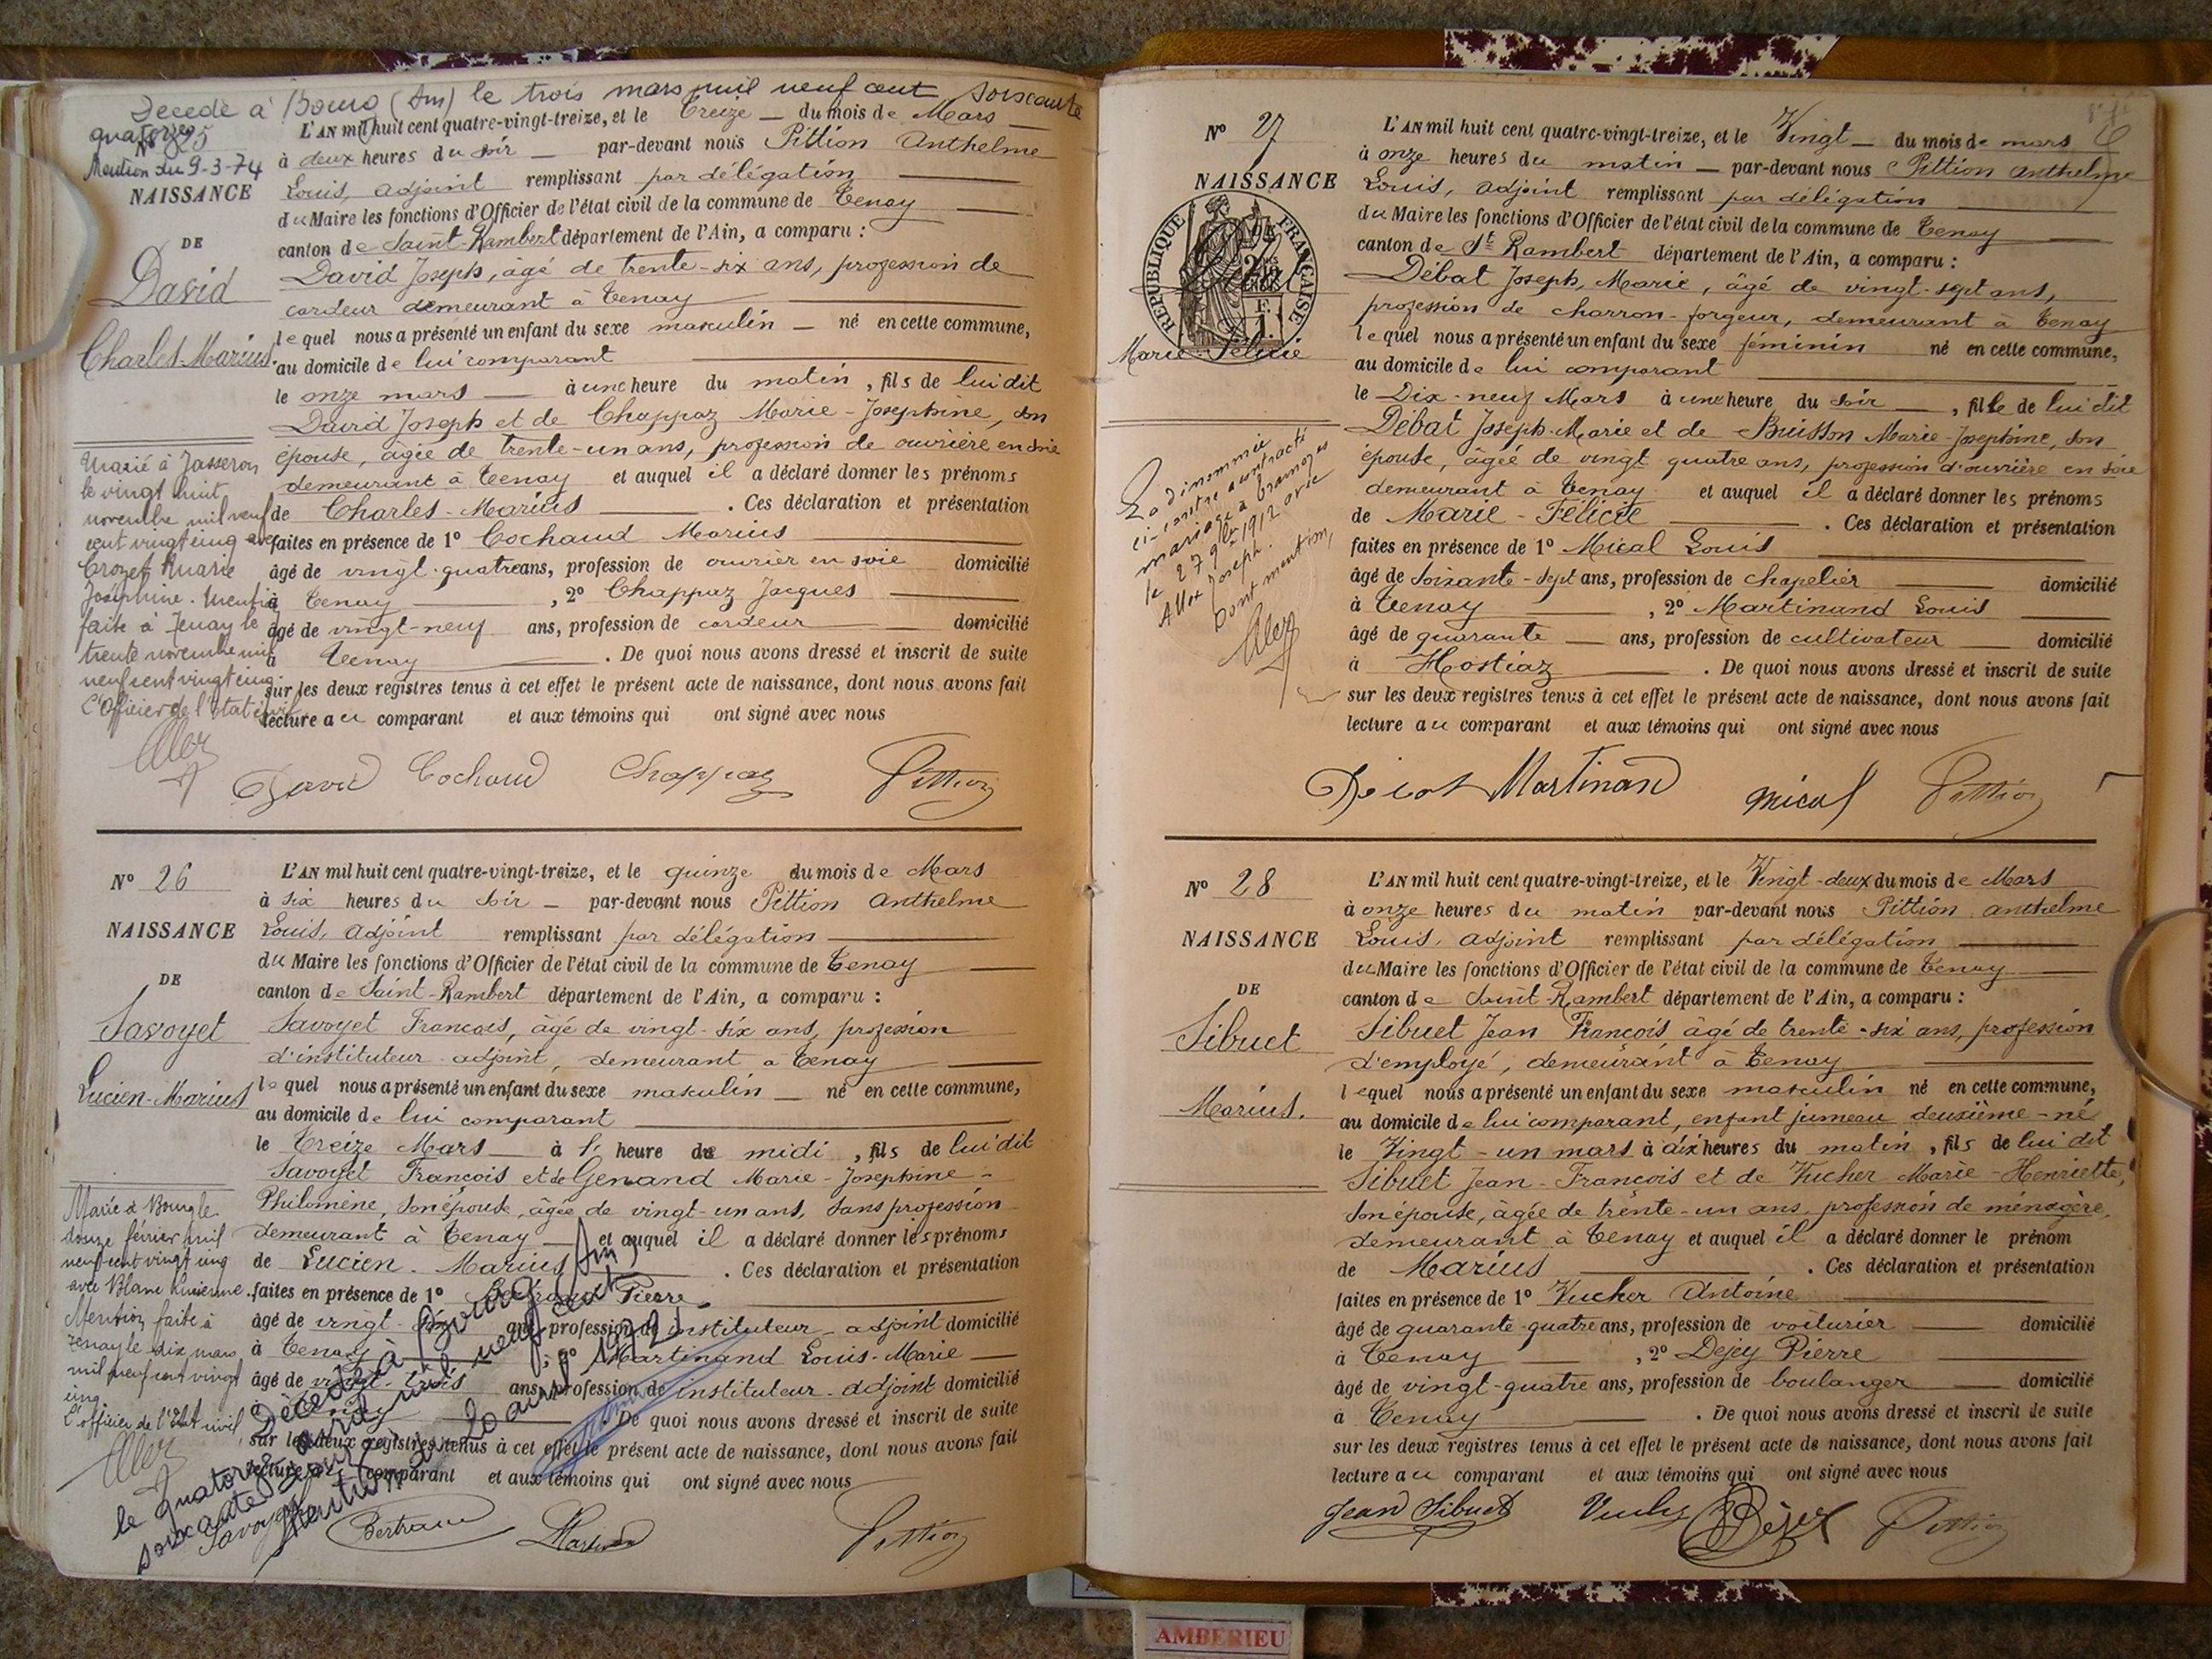 Décédé à Bourg (Ain) le trois mars mil neuf cent soixante
quatorze
Mention du 9-3-74
N° 25
NAISSANCE
DE
David
Charles-Marius.
L'AN mil huit cent quatre-vingt-treize, et le Treize — du mois de Mars —
à deux heures du soir — par-devant nous Pittion Anthelme
Louis, adjoint remplissant par délégation
du Maire les fonctions d'Officier de l'état civil de la commune de Tenay
canton de Saint-Rambert département de l'Ain, a comparu :
David Joseph, âgé de trente-six ans, profession de
cardeur demeurant à Tenay
lequel nous a présenté un enfant du sexe masculin — né en cette commune,
au domicile de lui comparant
le onze mars — à une heure du matin, fils de lui dit
David Joseph et de Chappaz Marie-Josephine, son
épouse, âgée de trente-un ans, profession de ouvrière en soie
demeurant à Tenay et auquel il a déclaré donner les prénoms
de Charles-Marius . Ces déclaration et présentation
faites en présence de 1° Cochaud Marius
âgé de vingt-quatre ans, profession de ouvrier en soie domicilié
à Tenay , 2° Chappaz Jacques
âgé de vingt-neuf ans, profession de cardeur domicilié
à Tenay . De quoi nous avons dressé et inscrit de suite
sur les deux registres tenus à cet effet le présent acte de naissance, dont nous avons fait
lecture au comparant et aux témoins qui ont signé avec nous
Marié à Jasseron
le vingt huit
novembre mil neuf
cent vingt cinq avec
Crozet Marie
Joséphine. Mention
faite à Tenay le
trente novembre mil
neuf cent vingt cinq.
L'Officier de l'état civil
David Cochaud Chappaz Pittion
N° 26
NAISSANCE
DE
Savoyet
Lucien-Marius
L'AN mil huit cent quatre-vingt-treize, et le quinze du mois de Mars
à six heures du soir — par-devant nous Pittion Anthelme
Louis, adjoint remplissant par délégation
du Maire les fonctions d'Officier de l'état civil de la commune de Tenay
canton de Saint-Rambert département de l'Ain, a comparu :
Savoyet François, âgé de vingt-six ans, profession
d'instituteur-adjoint, demeurant à Tenay
lequel nous a présenté un enfant du sexe masculin — né en cette commune,
au domicile de lui comparant
le Treize Mars — à heure de midi, fils de lui dit
Savoyet François et de Genand Marie-Josephine-
Philomène, son épouse, âgée de vingt-un ans, sans profession
demeurant à Tenay — et auquel il a déclaré donner les prénoms
de Lucien-Marius . Ces déclaration et présentation
faites en présence de 1° Pierre
âgé de vingt ans, profession de instituteur-adjoint domicilié
à Tenay , 2° Martinand Louis-Marie
âgé de vingt-trois ans, profession de instituteur-adjoint domicilié
à Tenay . De quoi nous avons dressé et inscrit de suite
sur les deux registres tenus à cet effet le présent acte de naissance, dont nous avons fait
lecture au comparant et aux témoins qui ont signé avec nous
Marié à Bourg le
douze février mil
neuf cent vingt cinq
avec Blanc Lucienne.
Mention faite à
Tenay le dix mars
mil neuf cent vingt
cinq.
L'officier de l'état civil,
Décédé à Bourg (Ain)
le quatorze avril mil neuf cent
soixante
Mention 20 avril 1972
Savoyet Bertrand Martinand Pittion
N° 27
NAISSANCE
RÉPUBLIQUE FRANÇAISE
Marie-Félicie
L'AN mil huit cent quatre-vingt-treize, et le Vingt — du mois de mars
à onze heures du matin — par-devant nous Pittion anthelme
Louis, adjoint remplissant par délégation
du Maire les fonctions d'Officier de l'état civil de la commune de Tenay
canton de St Rambert département de l'Ain, a comparu :
Débat Joseph, Marie, âgé de vingt-sept ans,
profession de charron-forgeur, demeurant à Tenay
lequel nous a présenté un enfant du sexe féminin né en cette commune,
au domicile de lui comparant
le Dix-neuf Mars à une heure du soir —, fille de lui dit
Débat Joseph-Marie et de Buisson Marie-Josephine, son
épouse, âgée de vingt quatre ans, profession d'ouvrière en soie
demeurant à Tenay et auquel il a déclaré donner les prénoms
de Marie-Félicie . Ces déclaration et présentation
faites en présence de 1° Mical Louis
âgé de soixante-sept ans, profession de chapelier domicilié
à Tenay , 2° Martinand Louis
âgé de quarante — ans, profession de cultivateur domicilié
à Hostiaz . De quoi nous avons dressé et inscrit de suite
sur les deux registres tenus à cet effet le présent acte de naissance, dont nous avons fait
lecture au comparant et aux témoins qui ont signé avec nous
La dénommée
ci-contre a contracté
mariage à
le 27 9bre 1912 avec
Joseph.
Dont mention,
Débat Martinand Mical Pittion
N° 28
NAISSANCE
DE
Sibuet
Marius.
L'AN mil huit cent quatre-vingt-treize, et le Vingt-deux du mois de Mars
à onze heures du matin par-devant nous Pittion anthelme
Louis, adjoint remplissant par délégation
du Maire les fonctions d'Officier de l'état civil de la commune de Tenay
canton de Saint-Rambert département de l'Ain, a comparu :
Sibuet Jean François âgé de trente-six ans, profession
d'employé, demeurant à Tenay
lequel nous a présenté un enfant du sexe masculin né en cette commune,
au domicile de lui comparant, enfant jumeau deuxième-né
le Vingt-un mars à dix heures du matin, fils de lui dit
Sibuet Jean-François et de Vucher Marie-Henriette,
son épouse, âgée de trente-un ans, profession de ménagère,
demeurant à Tenay et auquel il a déclaré donner le prénom
de Marius . Ces déclaration et présentation
faites en présence de 1° Vucher Antoine
âgé de quarante-quatre ans, profession de voiturier domicilié
à Tenay , 2° Dejey Pierre
âgé de vingt-quatre ans, profession de boulanger domicilié
à Tenay . De quoi nous avons dressé et inscrit de suite
sur les deux registres tenus à cet effet le présent acte de naissance, dont nous avons fait
lecture au comparant et aux témoins qui ont signé avec nous
Jean Sibuet Vucher Dejey Pittion
AMBERIEU